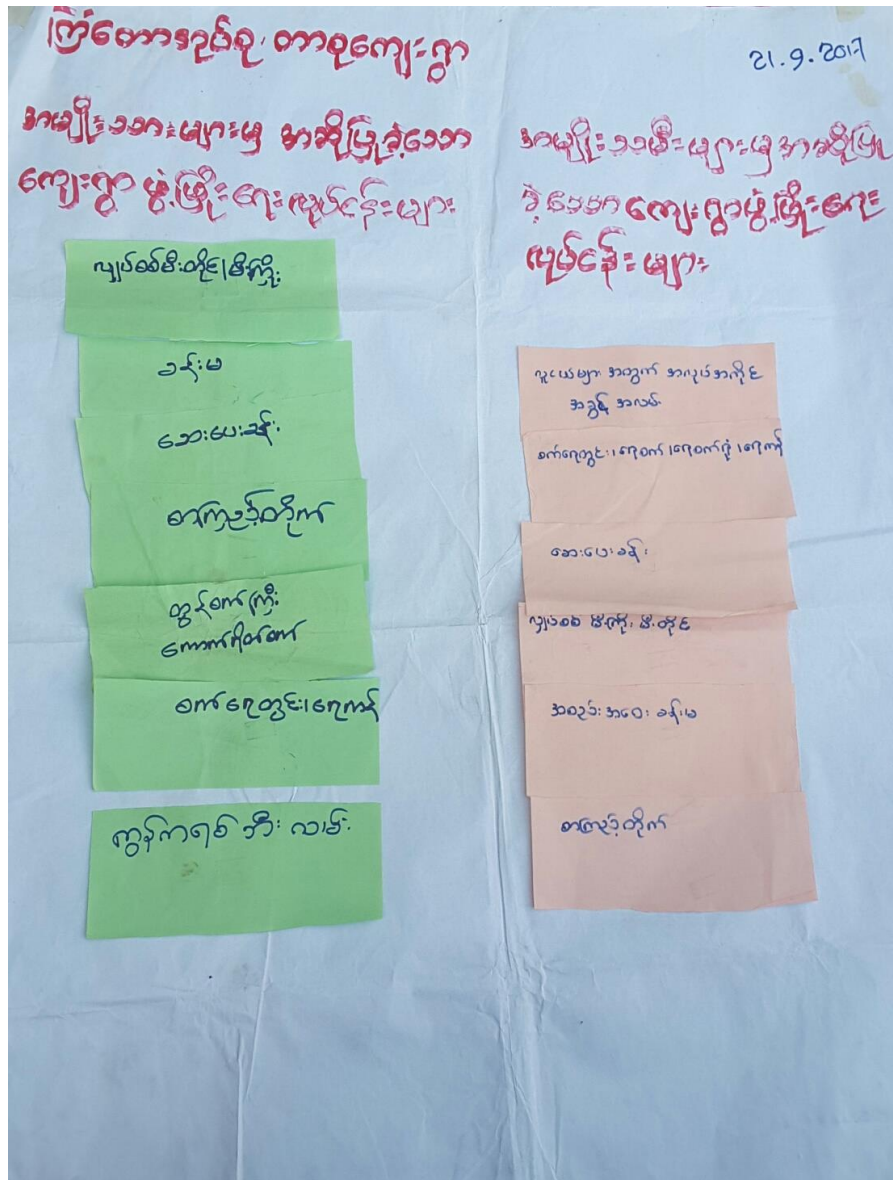 ကြံတောအုပ်စု၊ တာစုကျေးရွာ
21.9.2017
အမျိုးသားများမှ အဆိုပြုခဲ့သော
ကျေးရွာ ဖွံ့ဖြိုးရေး လုပ်ငန်းများ
လျှပ်စစ်မီးတိုင်၊ မီးကြိုး
ခန်းမ
ဆေးပေးခန်း
စာကြည့်တိုက်
ထွန်စက်ကြီး
ကောက်ရိတ်စက်
စက်ရေတွင်း၊ ရေကန်
ကွန်ကရစ် လမ်း
အမျိုးသမီးများမှ အဆိုပြု
ခဲ့သော ကျေးရွာဖွံ့ဖြိုးရေး
လုပ်ငန်းများ
လူငယ်များ အတွက် အလုပ်အကိုင်
အခွင့် အလမ်း
စက်ရေတွင်း၊ ရေစက်၊ ရေစက်ရုံ၊ ရေကန်
ဆေးပေးခန်း
လျှပ်စစ် မီးကြိုး၊ မီးတိုင်
အစည်းအဝေး ခန်းမ
စာကြည့်တိုက်